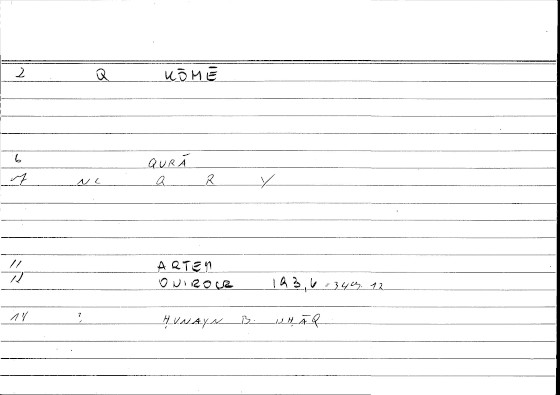 2 Q KŌMĒ
6 QURĀ
7 NC Q R Y
11 ARTEM
12 ONIROCR 193,6 = 349, 12
14 ? ḤUNAYN B. ISḤĀQ